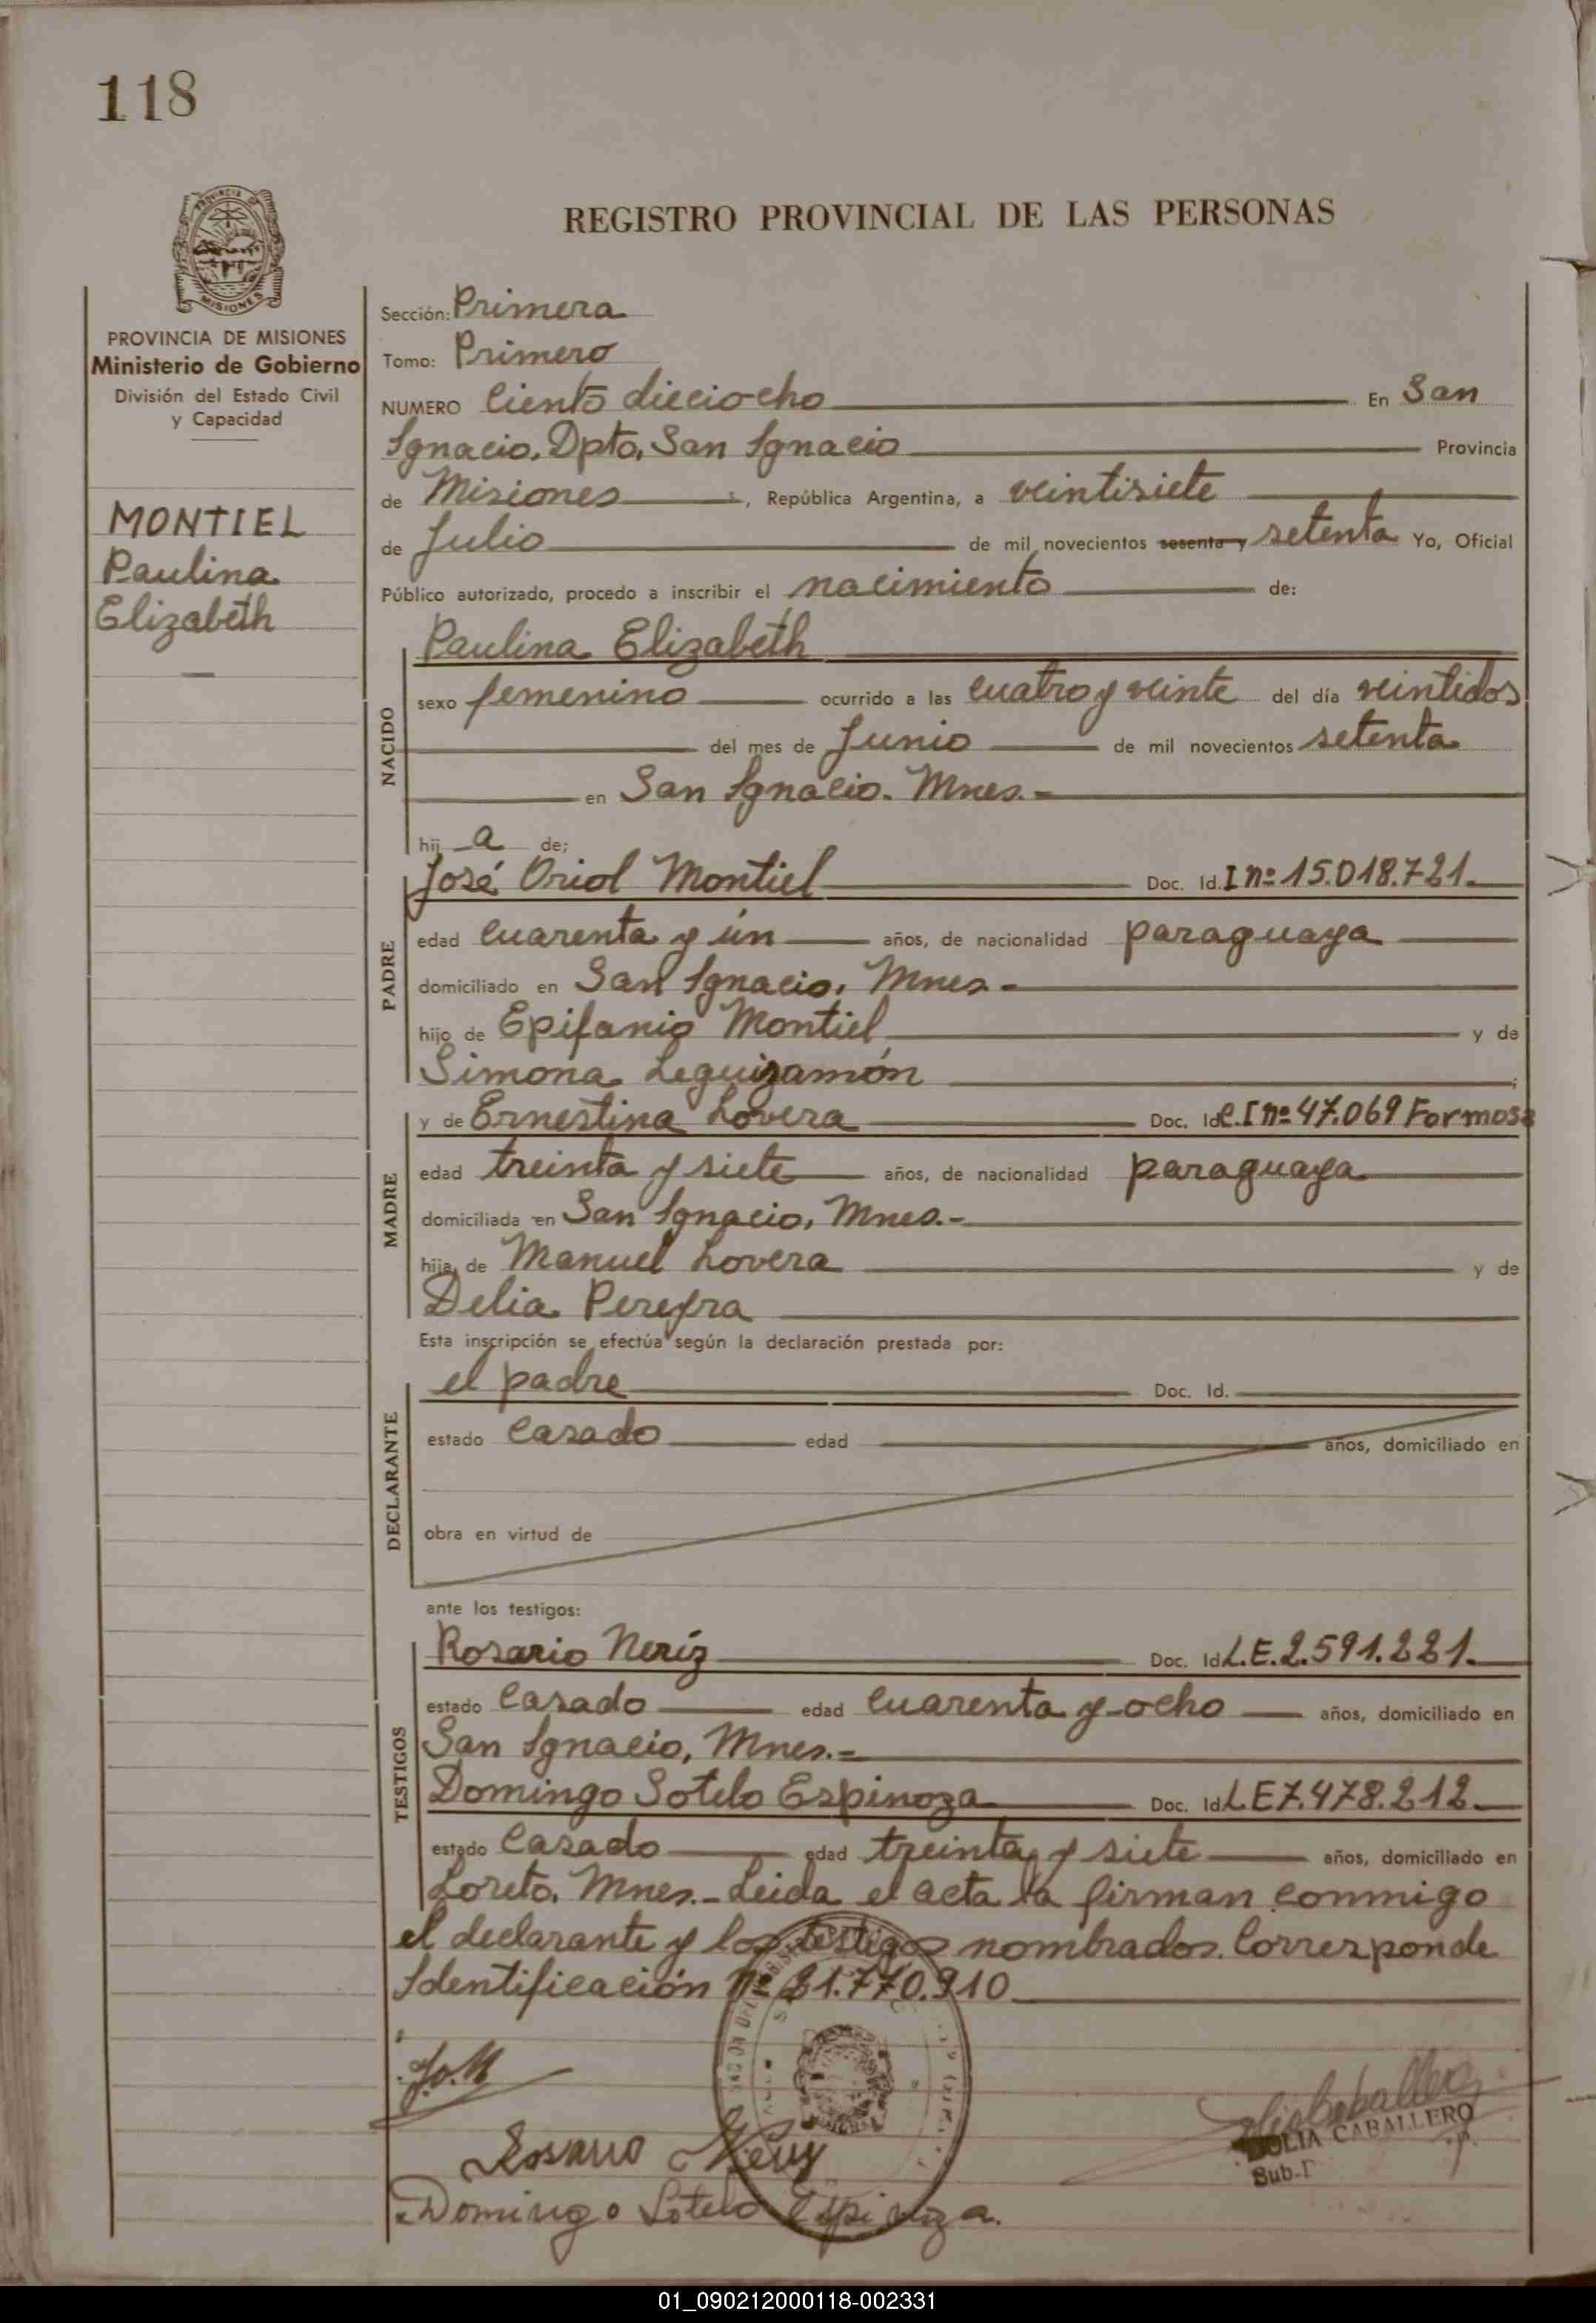 118
PROVINCIA DE
MISIONES
PROVINCIA DE MISIONES
Ministerio de Gobierno
División del Estado Civil
y Capacidad
MONTIEL
Paulina
Elizabeth
REGISTRO PROVINCIAL DE LAS PERSONAS
Sección: Primera
Tomo: Primero
NUMERO Ciento dieciocho En San
Ignacio, Dpto, San Ignacio Provincia
de Misiones, República Argentina, a veintisiete
de Julio de mil novecientos sesenta y setenta Yo, Oficial
Público autorizado, procedo a inscribir el nacimiento de:
NACIDO
Paulina Elizabeth
sexo femenino ocurrido a las cuatro y veinte del día veintidos
del mes de Junio de mil novecientos setenta
en San Ignacio. Mnes.=
hij a de;
PADRE
José Oriol Montiel Doc. Id. I nº 15.018.721.
edad cuarenta y ún años, de nacionalidad paraguaya
domiciliado en San Ignacio, Mnes-
hijo de Epifanio Montiel y de
Simona Leguizamón ;
MADRE
y de Ernestina Lovera Doc. Id C.I nº 47.069 Formosa
edad treinta y siete años, de nacionalidad paraguaya
domiciliada en San Ignacio, Mnes.-
hija de Manuel Lovera y de
Delia Pereyra
Esta inscripción se efectúa según la declaración prestada por:
DECLARANTE
el padre Doc. Id.
estado Casado edad años, domiciliado en
obra en virtud de
ante los testigos:
TESTIGOS
Rosario Neríz Doc. Id L.E.2.591.221.
estado Casado edad cuarenta y ocho años, domiciliado en
San Ignacio, Mnes.=
Domingo Sotelo Espinoza Doc. Id L E 7.478.212.
estado Casado edad treinta y siete años, domiciliado en
Loreto, Mnes.- Leida el acta la firman conmigo
el declarante y los testigos nombrados. Corresponde
Identificación nº 21.770.910
J.O.M
Rosario Neriz
Domingo Sotelo Espinoza.
CABALLERO
Sub-
01_090212000118-002331